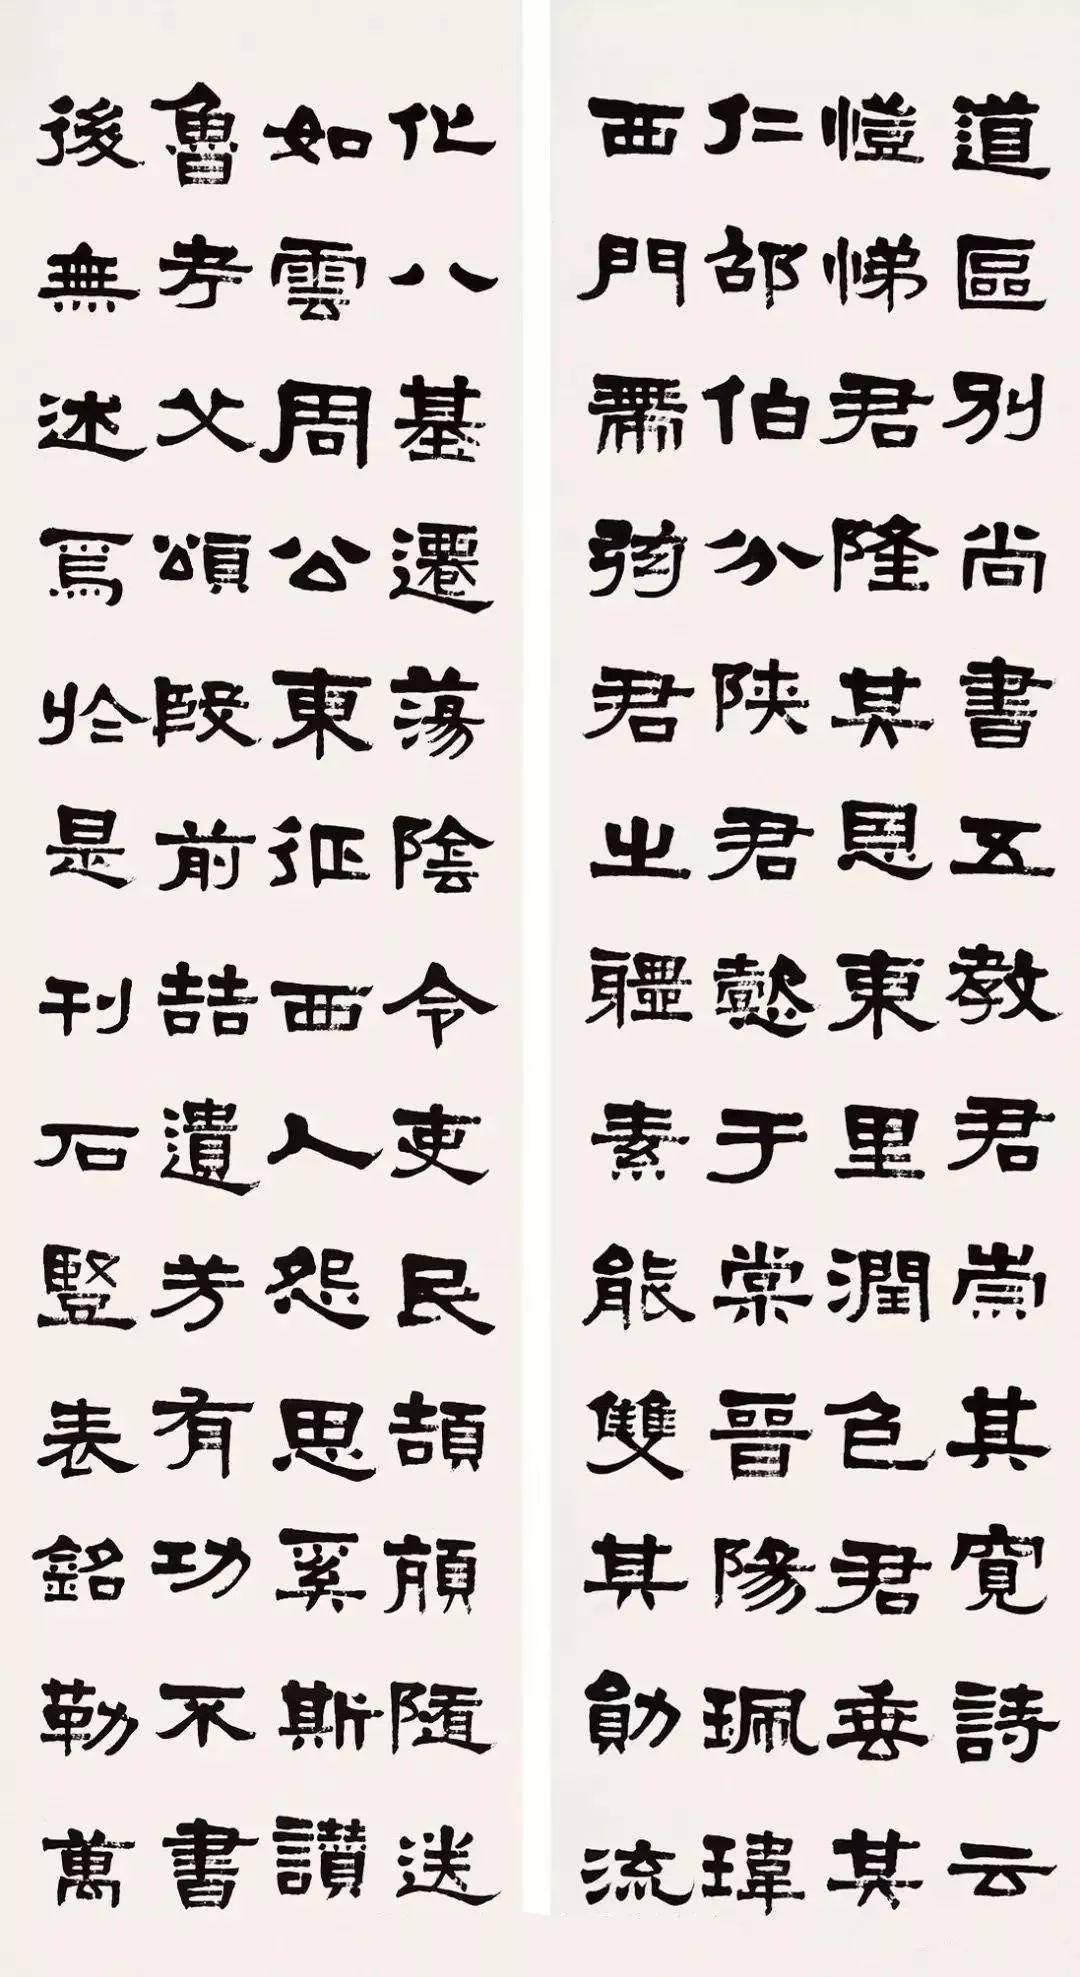 道區別尚書五教君崇其寬詩云
愷悌君隆其恩東里潤色君垂其
仁邵伯分陝君懿于棠晉陽珮瑋
西門帶弦君之體素能雙其勛流
化八基遷蕩陰令吏民頡頏隨送
如雲周公東征西人怨思奚斯讚
魯考父頌殷前喆遺芳有功不書
後無述焉於是刊石豎表銘勒萬